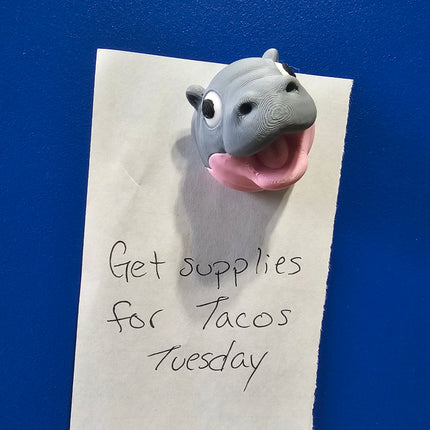 Get supplies
for Tacos
Tuesday